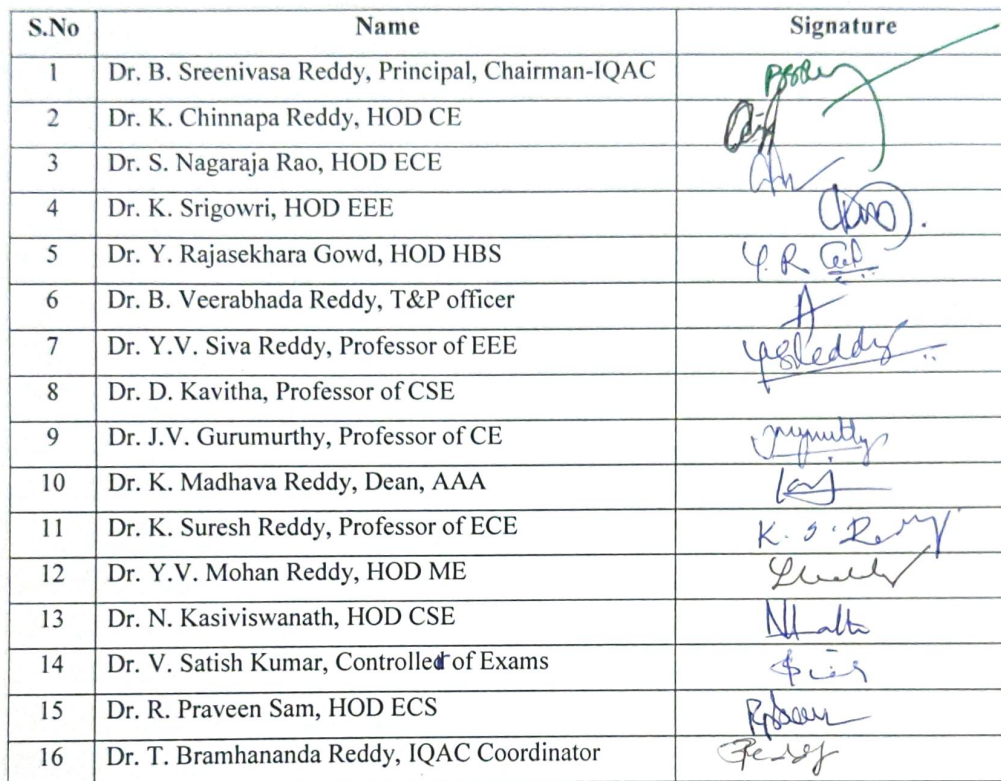 S.No Name Signature
1 Dr. B. Sreenivasa Reddy, Principal, Chairman-IQAC
2 Dr. K. Chinnapa Reddy, HOD CE
3 Dr. S. Nagaraja Rao, HOD ECE
4 Dr. K. Srigowri, HOD EEE
5 Dr. Y. Rajasekhara Gowd, HOD HBS Y. R
6 Dr. B. Veerabhada Reddy, T&P officer
7 Dr. Y.V. Siva Reddy, Professor of EEE
8 Dr. D. Kavitha, Professor of CSE
9 Dr. J.V. Gurumurthy, Professor of CE
10 Dr. K. Madhava Reddy, Dean, AAA
11 Dr. K. Suresh Reddy, Professor of ECE K. S. Reddy
12 Dr. Y.V. Mohan Reddy, HOD ME
13 Dr. N. Kasiviswanath, HOD CSE
14 Dr. V. Satish Kumar, Controller of Exams
15 Dr. R. Praveen Sam, HOD ECS
16 Dr. T. Bramhananda Reddy, IQAC Coordinator